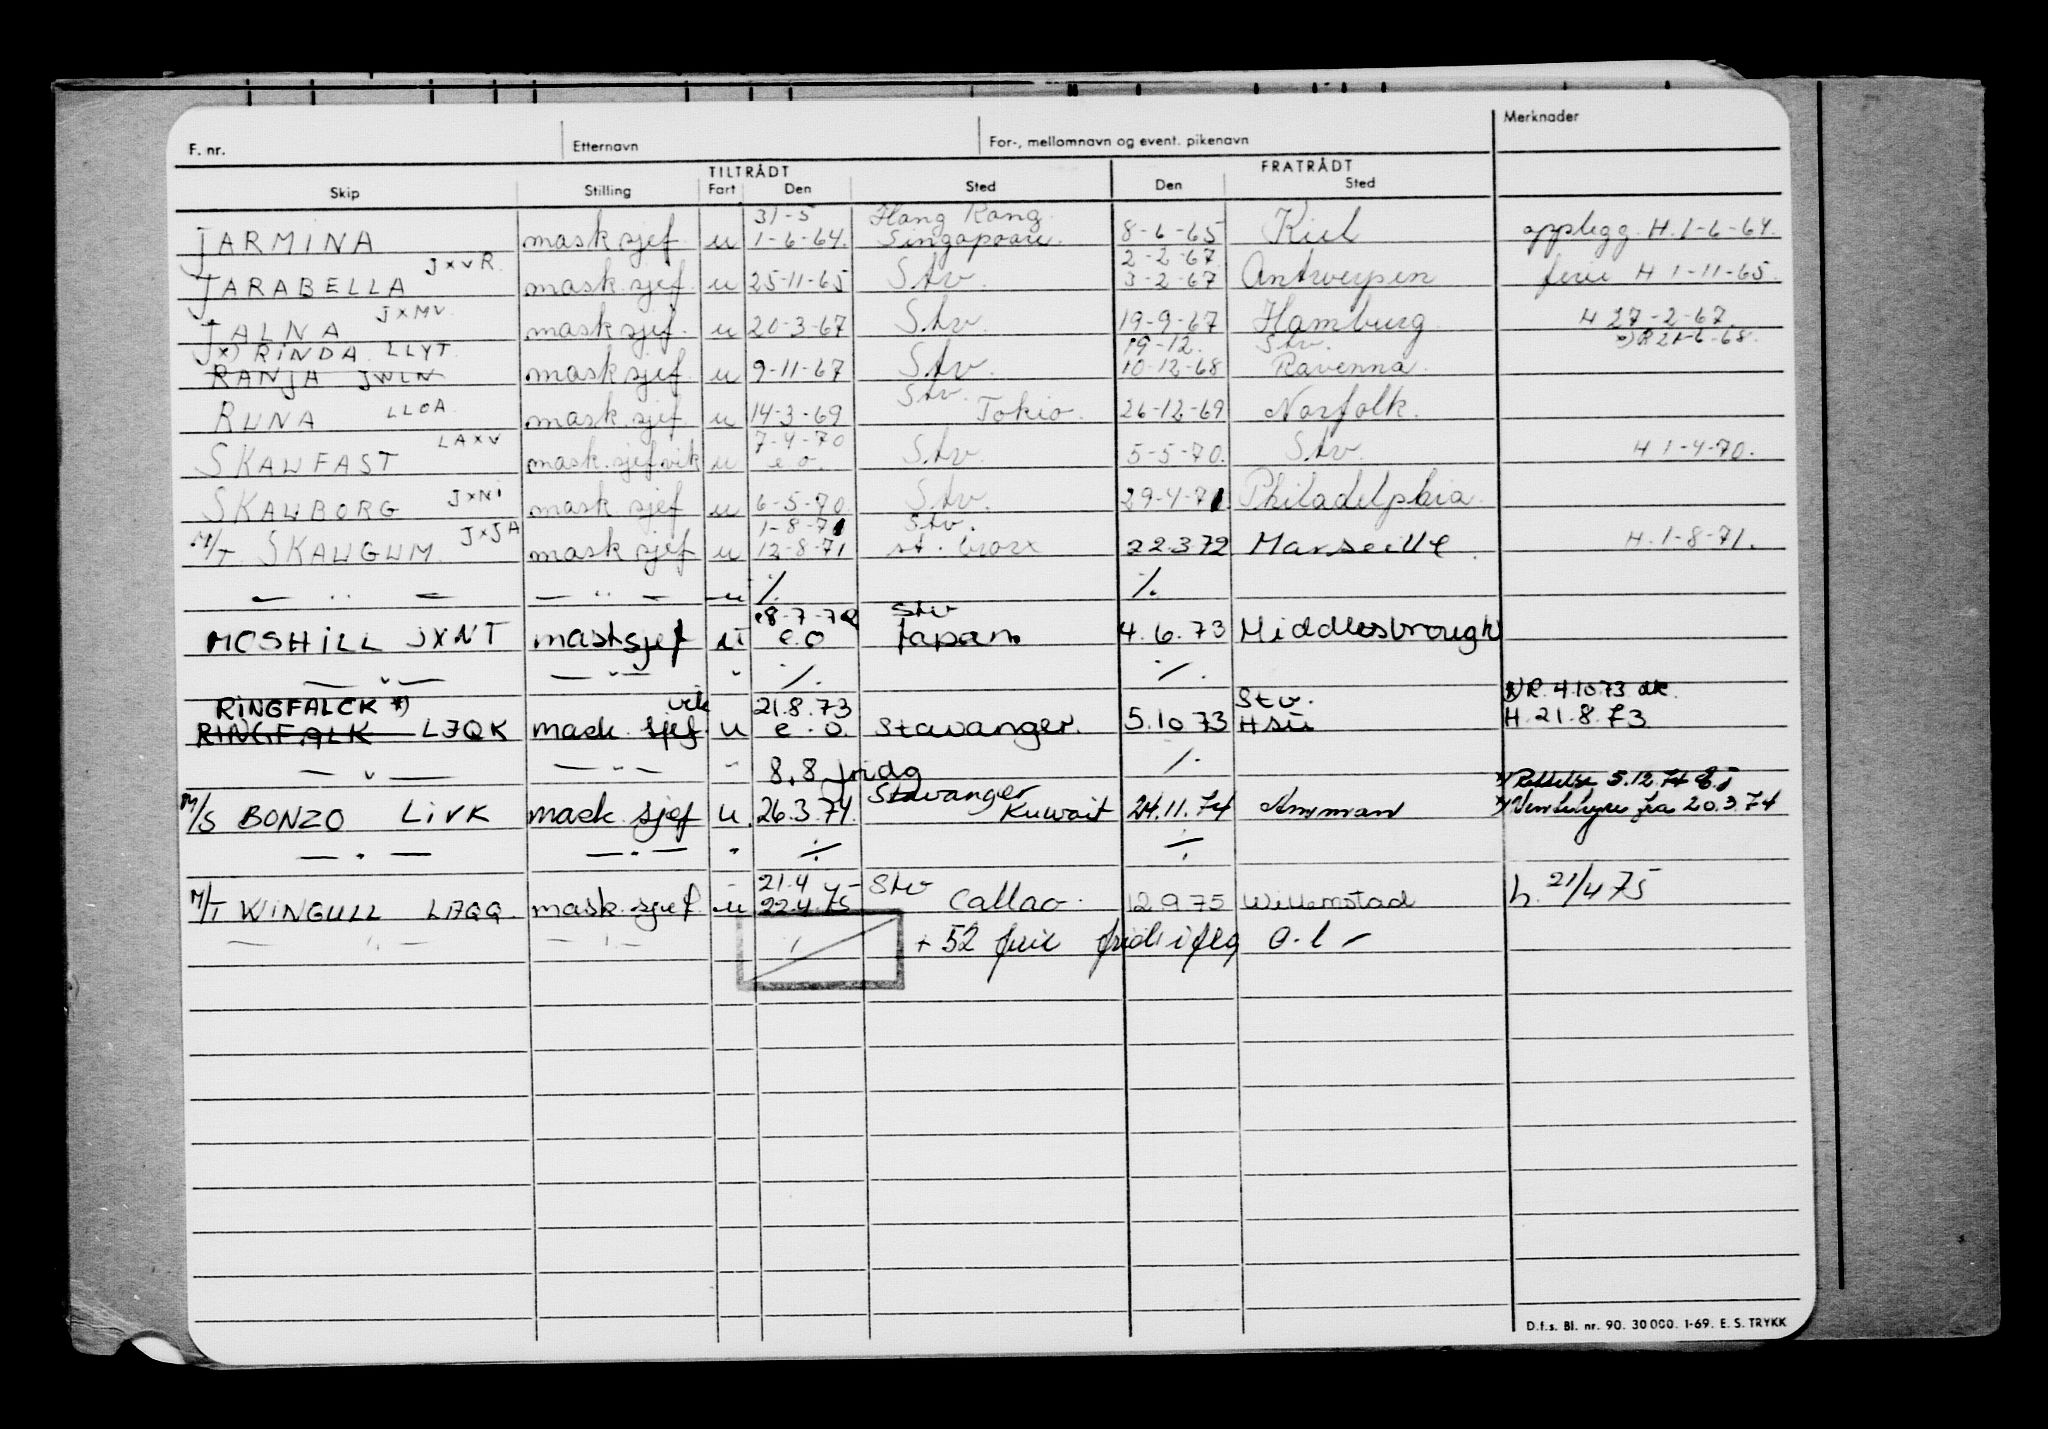 F. nr. Etternavn For-, mellomnavn og event. pikenavn Merknader
TILTRÅDT FRATRÅDT
Skip Stilling Fart Den Sted Den Sted
31-5 Hong Kong
JARMINA mask sjef u 1-6-64. Singapoore. 8-6-65 Kiel opplegg. H. 1-6-64.
JXVR 2-2-67.
JARABELLA mask. sjef. u 25-11-65 Stv. 3-2-67 Antwerpen ferie H 1-11-65.
JXMV.
JALNA mask sjef. u 20-3-67 Stv. 19-9-67 Hamburg. H 27-2-67
x) RINDA LLYT 19-12. Stv. x) R 21-6-68.
RANJA JWLN mask sjef. u 9-11-67 Stv. 10-12-68 Ravenna.
Stv.
RUNA LLOA. mask. sjef u 14-3-69 Tokio. 26-12-69 Norfolk.
LAXV 7-4-70
SKAUFAST mask. sjef vik u e o. Stv. 5-5-70. Stv. H 1-4-70.
SKAUBORG JXNI mask. sjef u 6-5-70. Stv. 29-4-71 Philadelphia.
JXJA 1-8-71 Stv.
M/T. SKAUGUM. mask sjef u 12-8-71 st. Croix 22.3.72 Marseille. H. 1-8-71.
— " — — " — u ./. ./.
28-7-72 Stv
MOSHILL JXNT masksjef u e.o Japan. 4.6.73 Middlesbrough
— " — — " — " ./. ./.
RINGFALCK x) vik 21.8.73 Stv. x) R. 4.10.73 ak.
RINGFALK LJQK mask. sjef. u e.o. Stavanger. 5.10.73 H. 21.8.73
— " — — " — " 8.8 fridg ./.
Stavanger x) Rettelse 5.12.74
M/S BONZO LIVK mask. sjef u. 26.3.74. Kuwait 24.11.74 Amman x) Ventehyre fra 20.3.74
— " — — " — " ./. ./.
21.4 Stv
M/T WINGULL LJQQ. mask. sjef. u 22.4.75 Callao. 12.9.75 Willemstad h. 21/4 75
— " — — " — + 52 frid. iflg o.l —
D.f.s. Bl. nr. 90. 30 000. 1-69. E. S. TRYKK